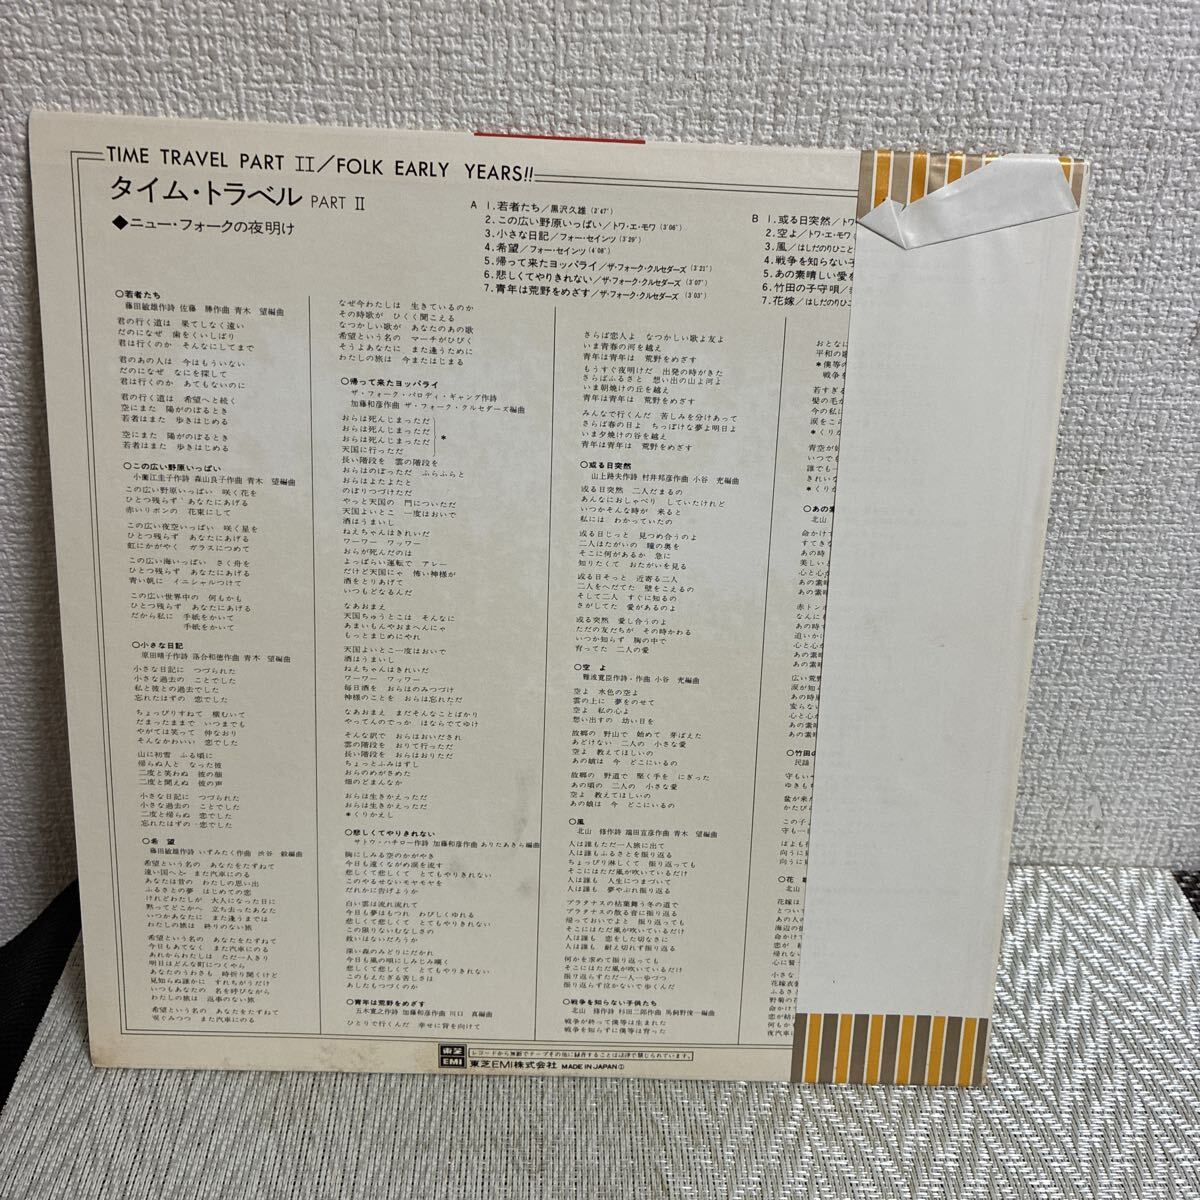 TIME TRAVEL PART II/FOLK EARLY YEARS!!
タイム・トラベル PART II
◆ニュー・フォークの夜明け
A 1.若者たち/黒沢久雄(2'47")
2.この広い野原いっぱい/トワ・エ・モワ(3'06")
3.小さな日記/フォー・セインツ(3'29")
4.希望/フォー・セインツ(4'08")
5.帰って来たヨッパライ/ザ・フォーク・クルセダーズ(3'21")
6.悲しくてやりきれない/ザ・フォーク・クルセダーズ(3'07")
7.青年は荒野をめざす/ザ・フォーク・クルセダーズ(3'03")
B 1.或る日突然/トワ
2.空よ/トワ・エ・モワ
3.風/はしだのりひこと
4.戦争を知らない子
5.あの素晴しい愛を
6.竹田の子守唄/
7.花嫁/はしだのりひこ
○若者たち
藤田敏雄作詩 佐藤 勝作曲 青木 望編曲
君の行く道は 果てしなく遠い
だのになぜ 歯をくいしばり
君は行くのか そんなにしてまで
君のあの人は 今はもういない
だのになぜ なにを探して
君は行くのか あてもないのに
君の行く道は 希望へと続く
空にまた 陽がのぼるとき
若者はまた 歩きはじめる
空にまた 陽がのぼるとき
若者はまた 歩きはじめる
○この広い野原いっぱい
小薗江圭子作詩 森山良子作曲 青木 望編曲
この広い野原いっぱい 咲く花を
ひとつ残らず あなたにあげる
赤いリボンの 花束にして
この広い夜空いっぱい 咲く星を
ひとつ残らず あなたにあげる
虹にかがやく ガラスにつめて
この広い海いっぱい さく舟を
ひとつ残らず あなたにあげる
青い帆に イニシャルつけて
この広い世界中の 何もかも
ひとつ残らず あなたにあげる
だから私に 手紙をかいて
手紙をかいて
○小さな日記
原田晴子作詩 落合和徳作曲 青木 望編曲
小さな日記に つづられた
小さな過去の ことでした
私と彼との過去でした
忘れたはずの 恋でした
ちょっぴりすねて 横むいて
だまったままで いつまでも
やがては笑って 仲なおり
そんなかわいい 恋でした
山に初雪 ふる頃に
帰らぬ人と なった彼
二度と笑わぬ 彼の顔
二度と聞えぬ 彼の声
小さな日記に つづられた
小さな過去の ことでした
二度と帰らぬ 恋でした
忘れたはずの 恋でした
○希 望
藤田敏雄作詩 いずみたく作曲 渋谷 毅編曲
希望という名の あなたをたずねて
遠い国へと また汽車にのる
あなたは昔の わたしの思い出
ふるさとの夢 はじめての恋
けれどわたしが 大人になった日に
黙ってどこかへ 立ち去ったあなた
いつかあなたに また逢うまでは
わたしの旅は 終りのない旅
希望という名の あなたをたずねて
今日もあてなく また汽車にのる
あれからわたしは ただ一人きり
明日はどんな町につくやら
あなたのうわさも 時折り聞くけど
見知らぬ誰かに すれちがうだけ
いつもあなたの 名を呼びながら
わたしの旅は 返事のない旅
希望という名の あなたをたずねて
涙ぐみつつ また汽車にのる
なぜ今わたしは 生きているのか
その時歌が ひくく聞こえる
なつかしい歌が あなたのあの歌
希望という名の マーチがひびく
そうよあなたに また逢うために
わたしの旅は 今またはじまる
○帰って来たヨッパライ
ザ・フォーク・パロディ・ギャング作詩
加藤和彦作曲 ザ・フォーク・クルセダーズ編曲
おらは死んじまっただ
おらは死んじまっただ
おらは死んじまっただ *
天国に行っただ
長い階段を 雲の階段を
おらはのぼっただ ふらふらと
おらはよたよたと
のぼりつづけただ
やっと天国の 門についただ
天国よいとこ 一度はおいで
酒はうまいし
ねえちゃんはきれいだ
ワーワー ワッワー
おらが死んだのは
よっぱらい運転で アレー
だけど天国にゃ 怖い神様が
酒をとりあげて
いつもどなるんだ
なあおまえ
天国ちゅうとこは そんなに
あまいもんやおまへんにゃ
もっとまじめにやれ
天国よいとこ一度はおいで
酒はうまいし
ねえちゃんはきれいだ
ワーワー ワッワー
毎日酒を おらはのみつづけ
神様のことを おらは忘れただ
なあおまえ まだそんなことばかり
やってんのでっか はならでてゆけ
そんな訳で おらはおいだされ
雲の階段を おりて行っただ
長い階段を おらはおりただ
ちょっとふみはずし
おらのめがさめた
畑のどまんなか
おらは生きかえっただ
おらは生きかえっただ
*くりかえし
○悲しくてやりきれない
サトウ・ハチロー作詩 加藤和彦作曲 ありたあきら編曲
胸にしみる空のかがやき
今日も遠くながめ涙を流す
悲しくて悲しくて とてもやりきれない
このやるせないモヤモヤを
だれかに告げようか
白い雲は流れ流れて
今日も夢はもつれ わびしくゆれる
悲しくて悲しくて とてもやりきれない
この限りないむなしさの
救いはないだろうか
深い森のみどりにだかれ
今日も風の唄にしみじみ嘆く
悲しくて悲しくて とてもやりきれない
このもえたぎる苦しさは
あしたもつづくのか
○青年は荒野をめざす
五木寛之作詩 加藤和彦作曲 川口 真編曲
ひとりで行くんだ 幸せに背を向けて
さらば恋人よ なつかしい歌よ友よ
いま青春の河を越え
青年は青年は 荒野をめざす
もうすぐ夜明けだ 出発の時がきた
さらばふるさと 想い出の山よ河よ
いま朝焼けの丘を越え
青年は青年は 荒野をめざす
みんなで行くんだ 苦しみを分けあって
さらば春の日よ ちっぽけな夢よ明日よ
いま夕焼けの谷を越え
青年は青年は 荒野をめざす
○或る日突然
山上路夫作詩 村井邦彦作曲 小谷 充編曲
或る日突然 二人だまるの
あんなにおしゃべり していたけれど
いつかそんな時が 来ると
私には わかっていたの
或る日じっと 見つめ合うのよ
二人はたがいの 瞳の奥を
そこに何があるか 急に
知りたくて おたがいを見る
或る日そっと 近寄る二人
二人をへだてた 壁をこえるの
そして二人 すぐに知るの
さがしてた 愛があるのよ
或る突然 愛し合うのよ
ただの友だちが その時かわる
いつか知らず 胸の中で
育ってた 二人の愛
○空 よ
難波寛臣作詩・作曲 小谷 充編曲
空よ 水色の空よ
雲の上に 夢をのせて
空よ 私の心よ
想い出すの 幼い日を
故郷の 野山で 始めて 芽ばえた
あどけない 二人の 小さな愛
空よ 教えてほしいの
あの娘は 今 どこにいるの
故郷の 野道で 堅く手を にぎった
あの頃の 二人の 小さな愛
空よ 教えてほしいの
あの娘は 今 どこにいるの
○風
北山 修作詩 端田宣彦作曲 青木 望編曲
人は誰もただ一人旅に出て
人は誰もふるさとを振り返る
ちょっぴり淋しくて 振り返っても
そこにはただ風が吹いているだけ
人は誰も 人生につまづいて
人は誰も 夢やぶれ振り返る
プラタナスの枯葉舞う冬の道で
プラタナスの散る音に振り返る
帰っておいでよと 振り返っても
そこにはただ風が吹いているだけ
人は誰も 恋をした切なさに
人は誰も 耐え切れず振り返る
何かを求めて振り返っても
そこにはただ風が吹いているだけ
振り返らずただ一人一歩づつ
振り返らず泣かないで歩くんだ
○戦争を知らない子供たち
北山 修作詩 杉田二郎作曲 馬飼野俊一編曲
戦争が終って僕等は生まれた
戦争を知らずに僕等は育った
おとなに
平和の歌
*僕等の
戦争を
若すぎる
髪の毛が
今の私に
涙をこら
*くりか
青空が好
いつでも
誰でも一
きれいな
*くりか
○あの素
北山
命かけて
すてきな
あの時
美しい
心と心
あの素晴
赤トンボ
なんに
あの時
追いかけ
心と心
あの素晴
広い荒野
涙が知
変らない
心と心
あの素晴
○竹田の
民謡
守もいや
ゆきもち
盆が来た
かたびら
この子よ
守も一
はよも行
向うに
向うに
○花 嫁
北山
花嫁は
とついで
あの人の
海辺の街
命かけて
恋が
帰れない
心に誓
小さな
花嫁衣裳
ふるさと
野菊の花
命かけて
恋が結
何もかも
夜汽車
東芝
EMI
レコードから無断でテープその他に録音することは法律で禁じられています。
東芝EMI株式会社 MADE IN JAPAN